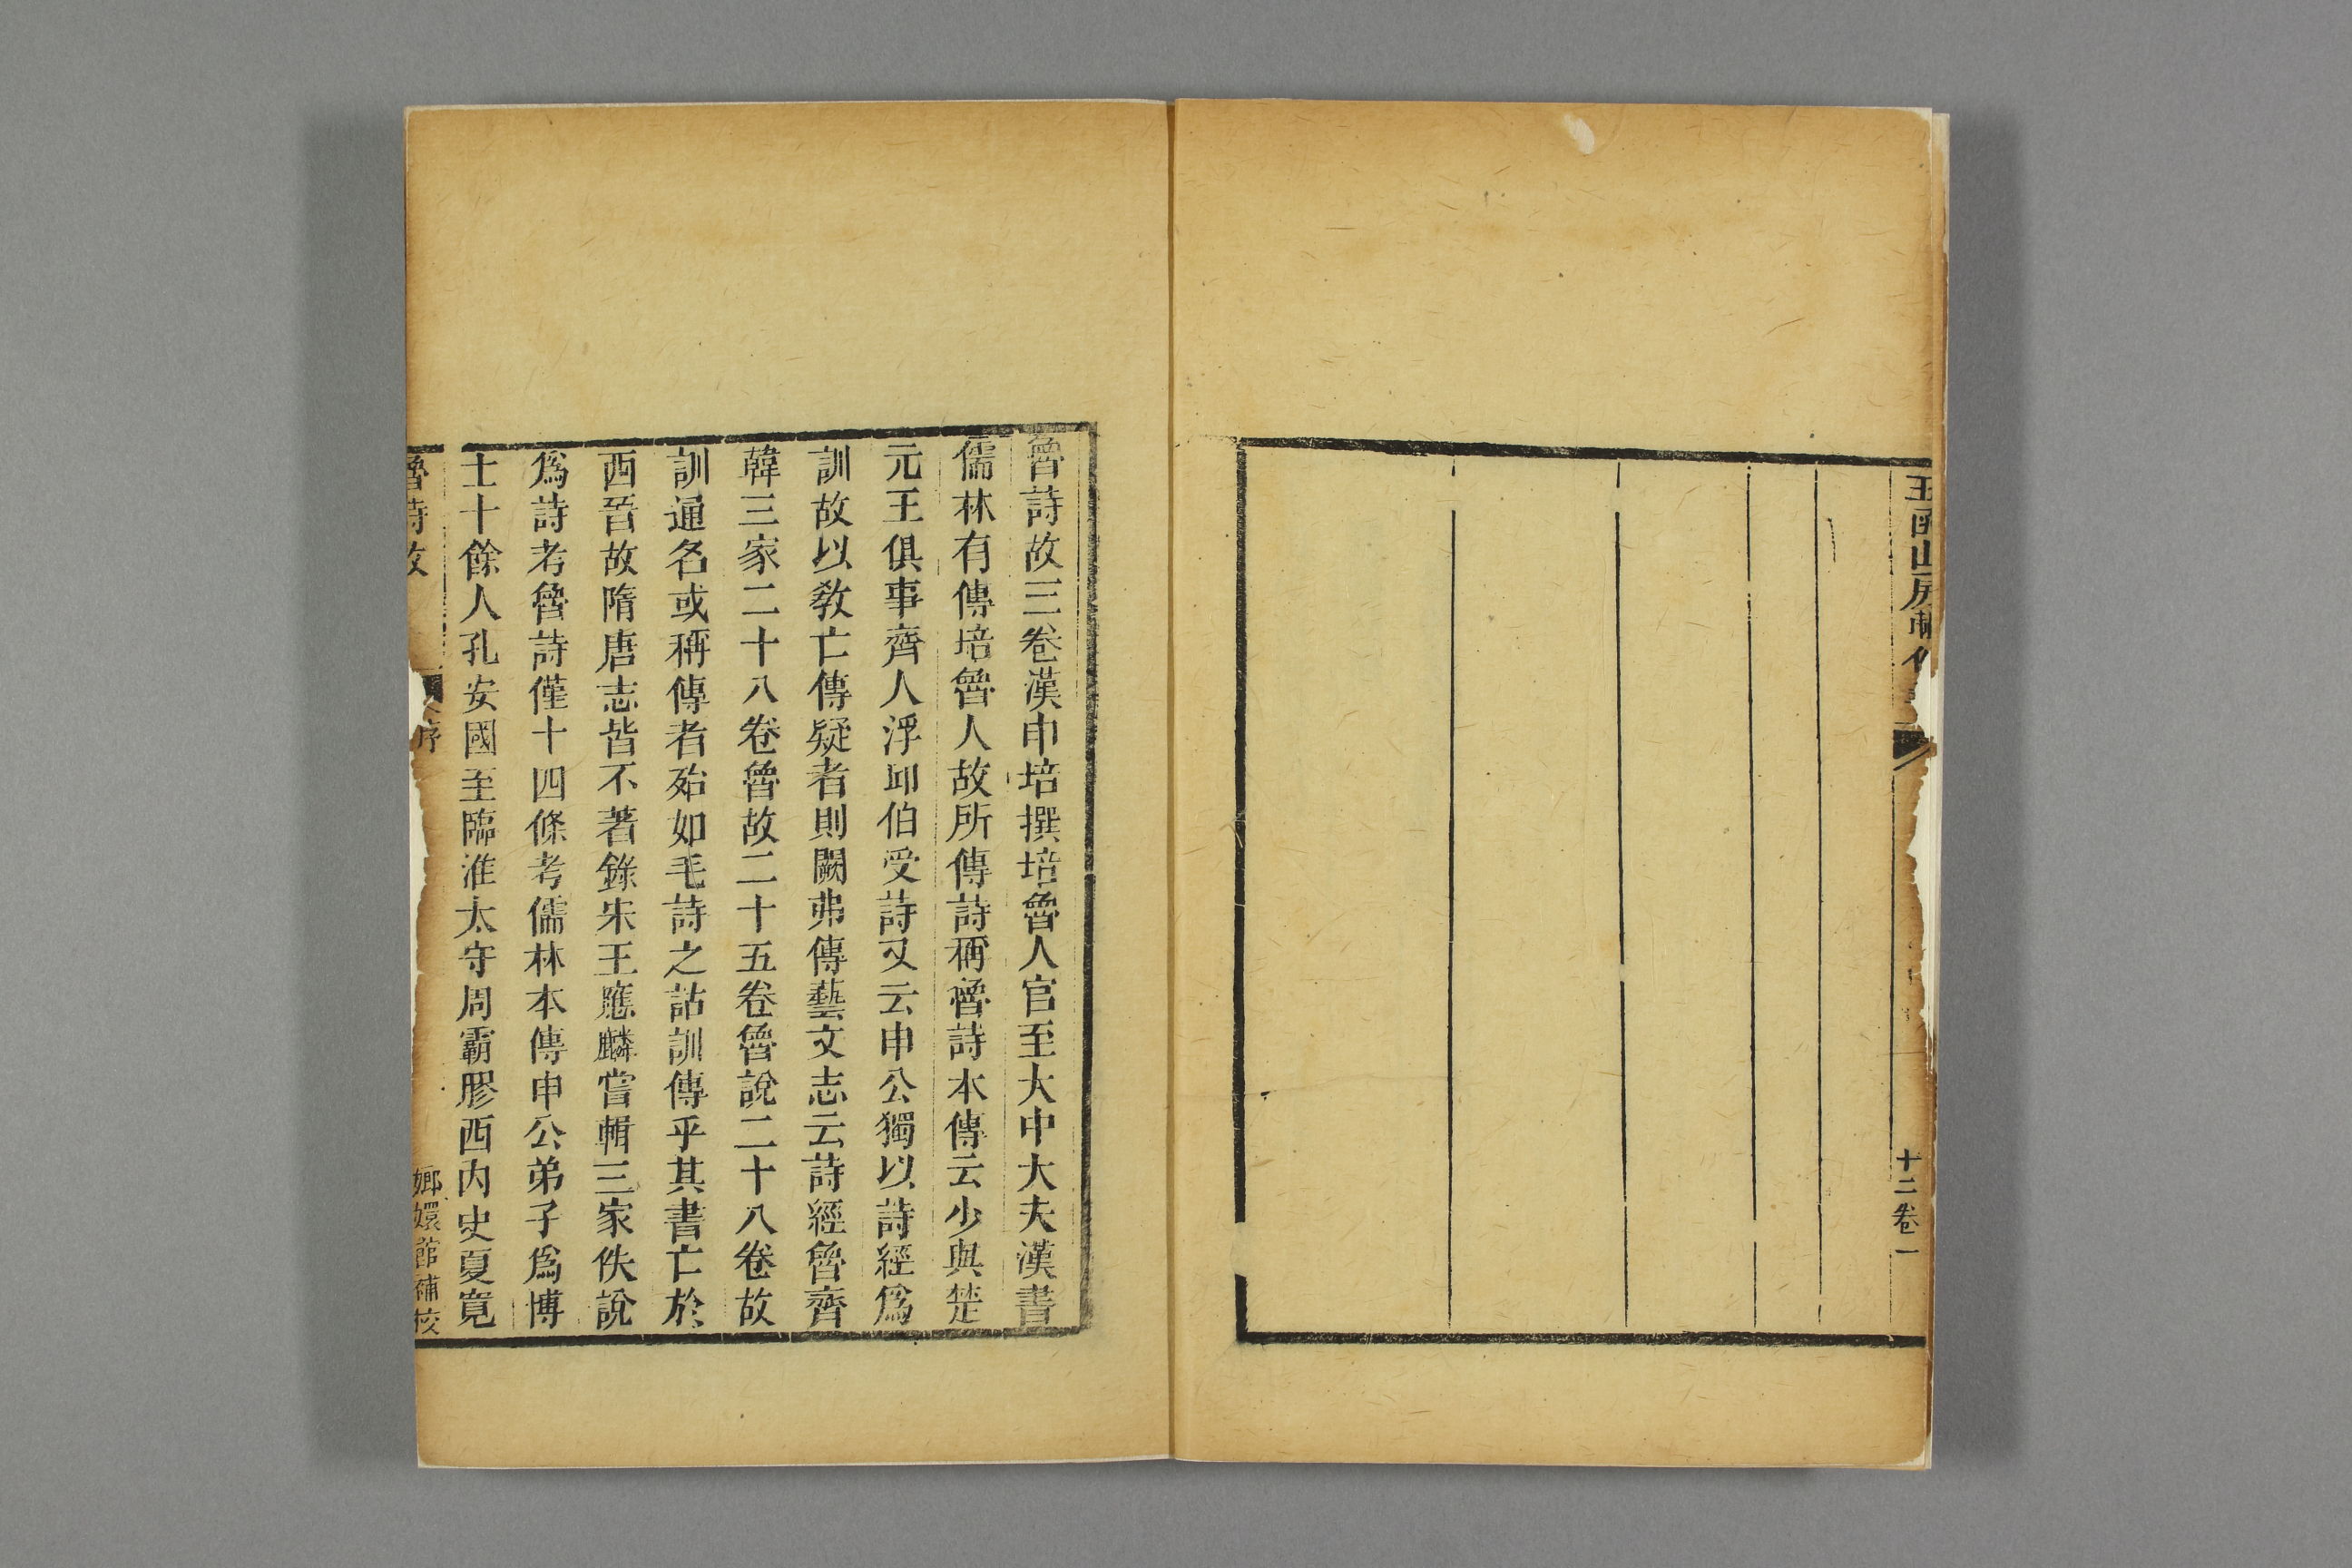 玉函山房輯佚
十二卷一
魯詩故三卷漢申培撰培魯人官至大中大夫漢書
儒林有傳培魯人故所傳詩稱魯詩本傳云少與楚
元王俱事齊人浮邱伯受詩又云申公獨以詩經爲
訓故以敎亡傳疑者則闕弗傳藝文志云詩經魯齊
韓三家二十八卷魯故二十五卷魯說二十八卷故
訓通名或稱傳者殆如毛詩之詁訓傳乎其書亡於
西晉故隋唐志皆不著錄宋王應麟嘗輯三家佚說
爲詩考魯詩僅十四條考儒林本傳申公弟子爲博
士十餘人孔安國至臨淮太守周霸膠西内史夏寬
魯詩故
序
嫏嬛館補校